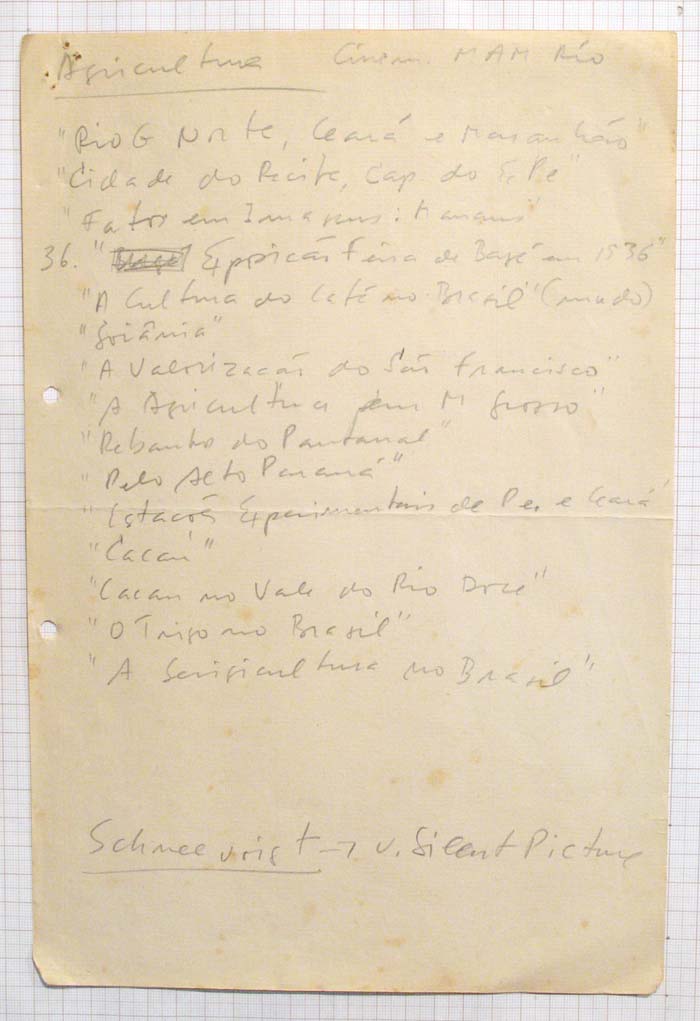 Agricultura Cinem. MAM Rio
"Rio G Norte, Ceará e Maranhão"
"Cidade do Recife, Cap do E. Pe"
"Fatos em Imagens: Manaus"
36. " Exposição Feira de Bagé em 1936"
"A Cultura do Café no Brasil" (mudo)
"Goiânia"
"A Valorização do São Francisco"
"A Agricultura em M Grosso"
"Rebanho do Pantanal"
"Pelo Alto Paraná"
"Estações Experimentais de Pe. e Ceará
"Cacau"
"Cacau no Vale do Rio Doce"
"O Trigo no Brasil"
"A Serigicultura no Brasil"
Schneevoigt → v. Silent Picture